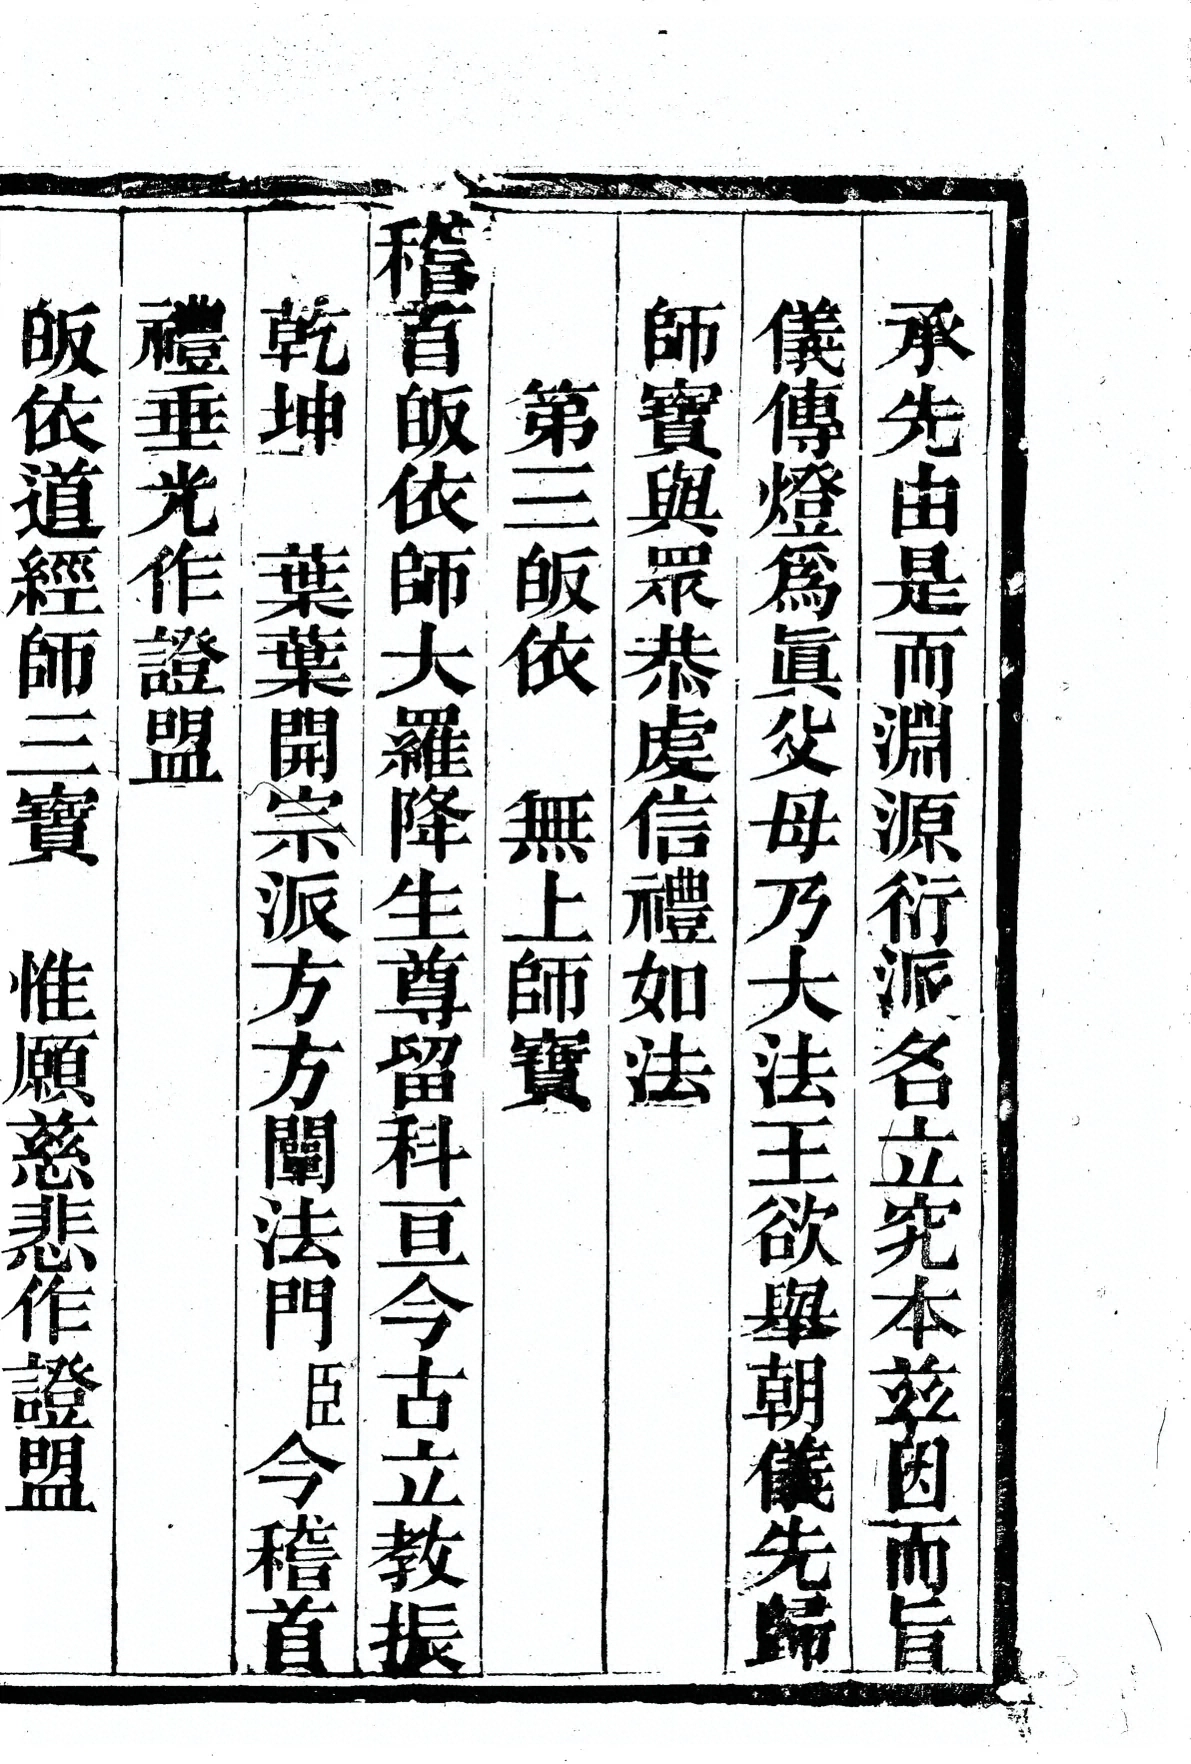 承先由是而淵源衍派名立究本茲因而旨
儀傳燈爲眞父母乃大法王欲舉朝儀先歸
師寶與眾恭虔信禮如法
第三皈依　無上師寶
稽首皈依師大羅降生尊留科亘今古立教振
乾坤　葉葉開宗派方方闡法門臣今稽首
禮垂光作證盟
皈依道經師三寶　惟願慈悲作證盟